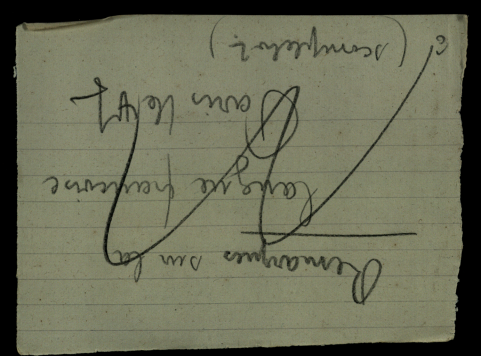 Remarques sur la
langue française
Paris 1647
(complet ?)